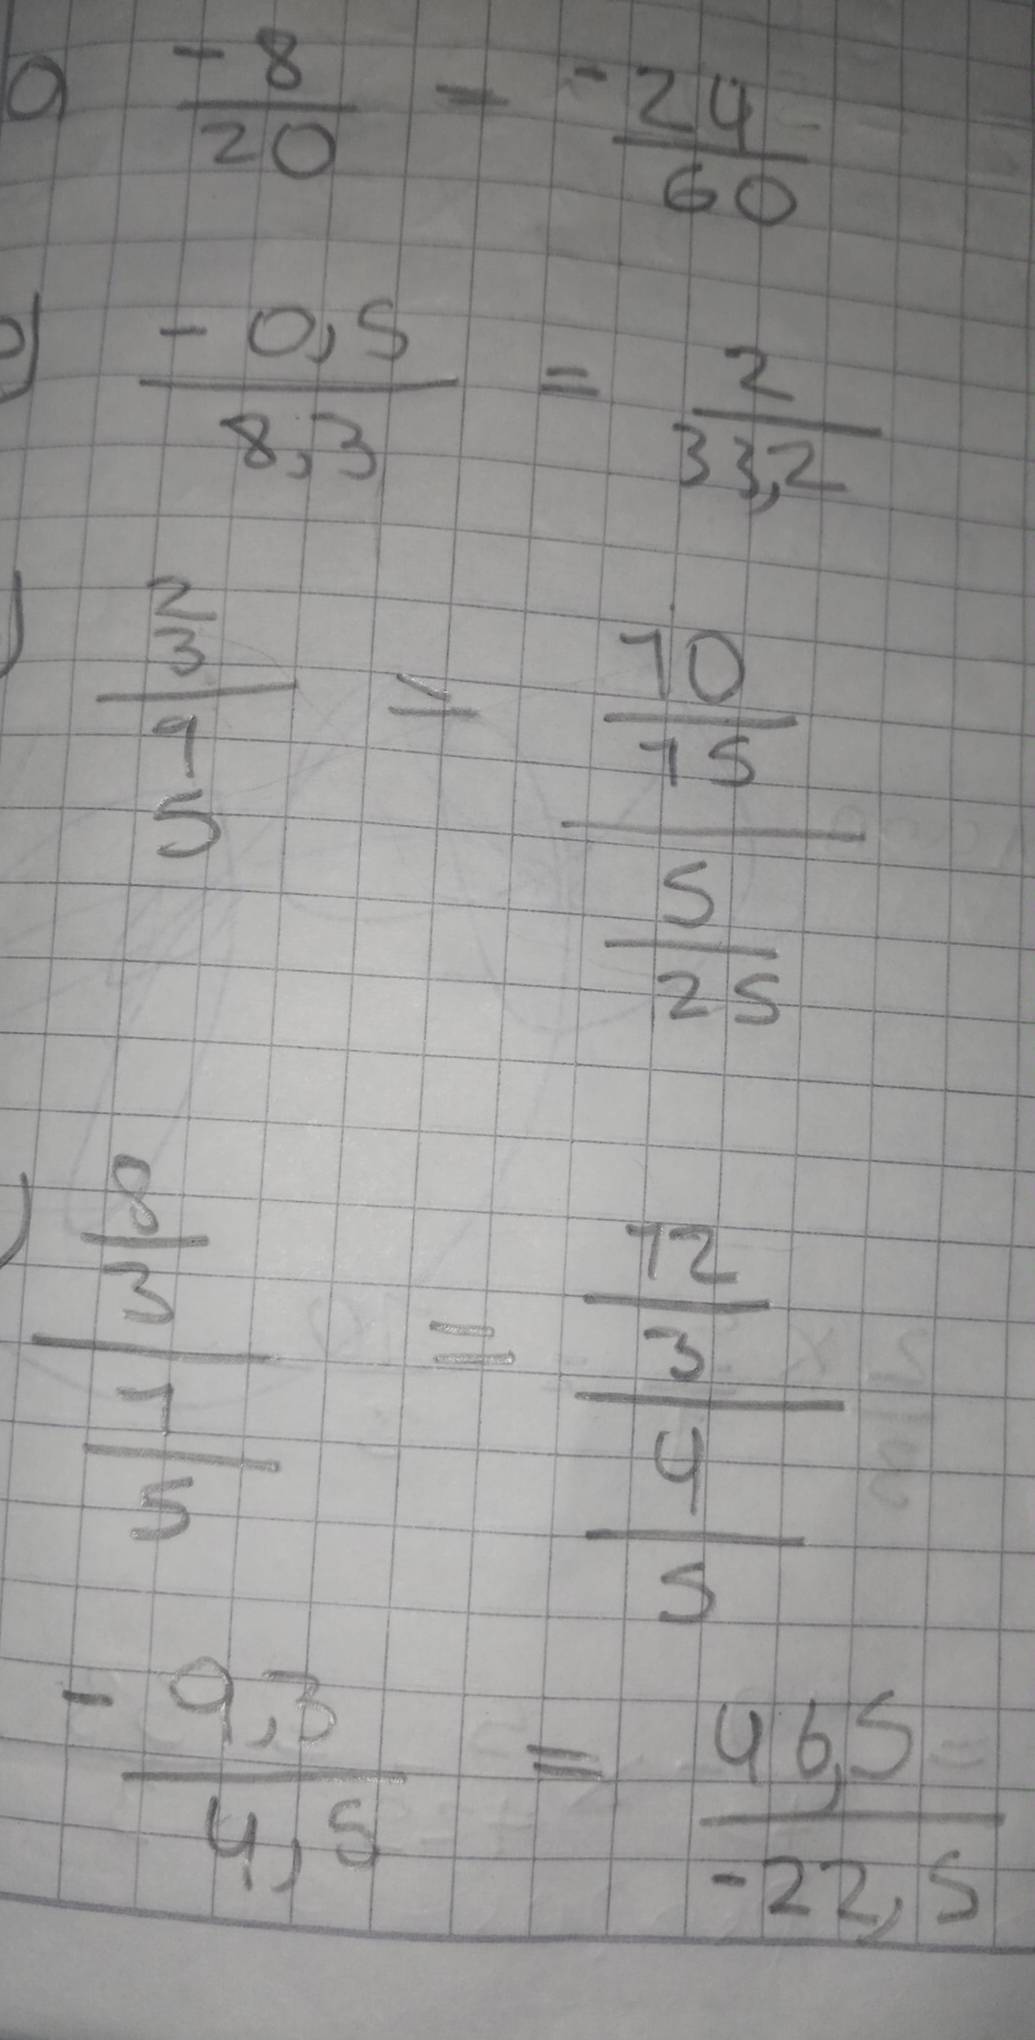 a) -8/20 = -24/60
b) -0,5/8,3 = 2/33,2
) 2/3 / 1/5 = 10/15 / 5/25
) 8/3 / 1/5 = 12/3 / 4/5
-9,3/4,5 = 46,5/-22,5